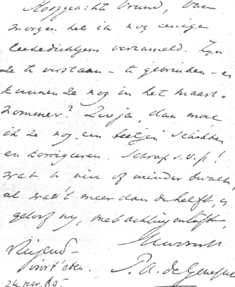 Hooggeachte Vriend, Van
morgen heb ik nog eenige
leekedichtjens verzameld. Zijn
ze te verstaan - te gebruiken - en
kunnen ze nog in het Maart-
nommer? Zoo ja, dan moet
ik ze nog een beetjen schikken
en corrigeeren. Schrap s.v.p!
wat u min of minder bevalt,
al was 't meer dan de helft, en
geloof mij, met achting en liefde
Vrijend
voort eten.
P. A. de Genestet
24 Febr. 60.